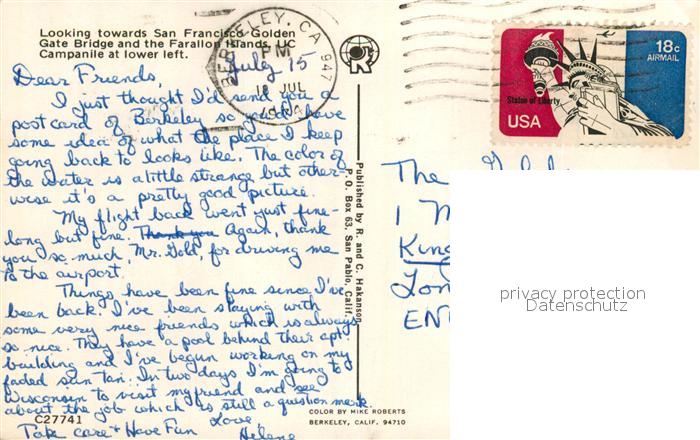 Looking towards San Francisco Golden
Gate Bridge and the Farallon Islands. UC
Campanile at lower left.
BERKELEY, CA 947
PM
JUL
July 15
Dear Friends,
I just thought I'd send you a
postcard of Berkeley so you'd have
some idea of what the place I keep
going back to looks like. The color of
the water is a little strange but other-
wise it's a pretty good picture.
My flight back went just fine -
long but fine. Thank you Again, thank
you so much, Mr. Gold, for driving me
to the airport.
Things have been fine since I've
been back. I've been staying with
some very nice friends which is always
so nice. They have a pool behind their apt.
building and I've begun working on my
faded sun tan. In two days I'm going to
Wisconsin to visit my friend and see
about the job which is still a question mark.
Take care + Have Fun
Love
Helene
C27741
Published by R. and C. Hakanson
P. O. Box 63, San Pablo, Calif.
COLOR BY MIKE ROBERTS
BERKELEY, CALIF. 94710
18c
AIRMAIL
Statue of Liberty
USA
The
1 M
King
Lon
EN
privacy protection
Datenschutz